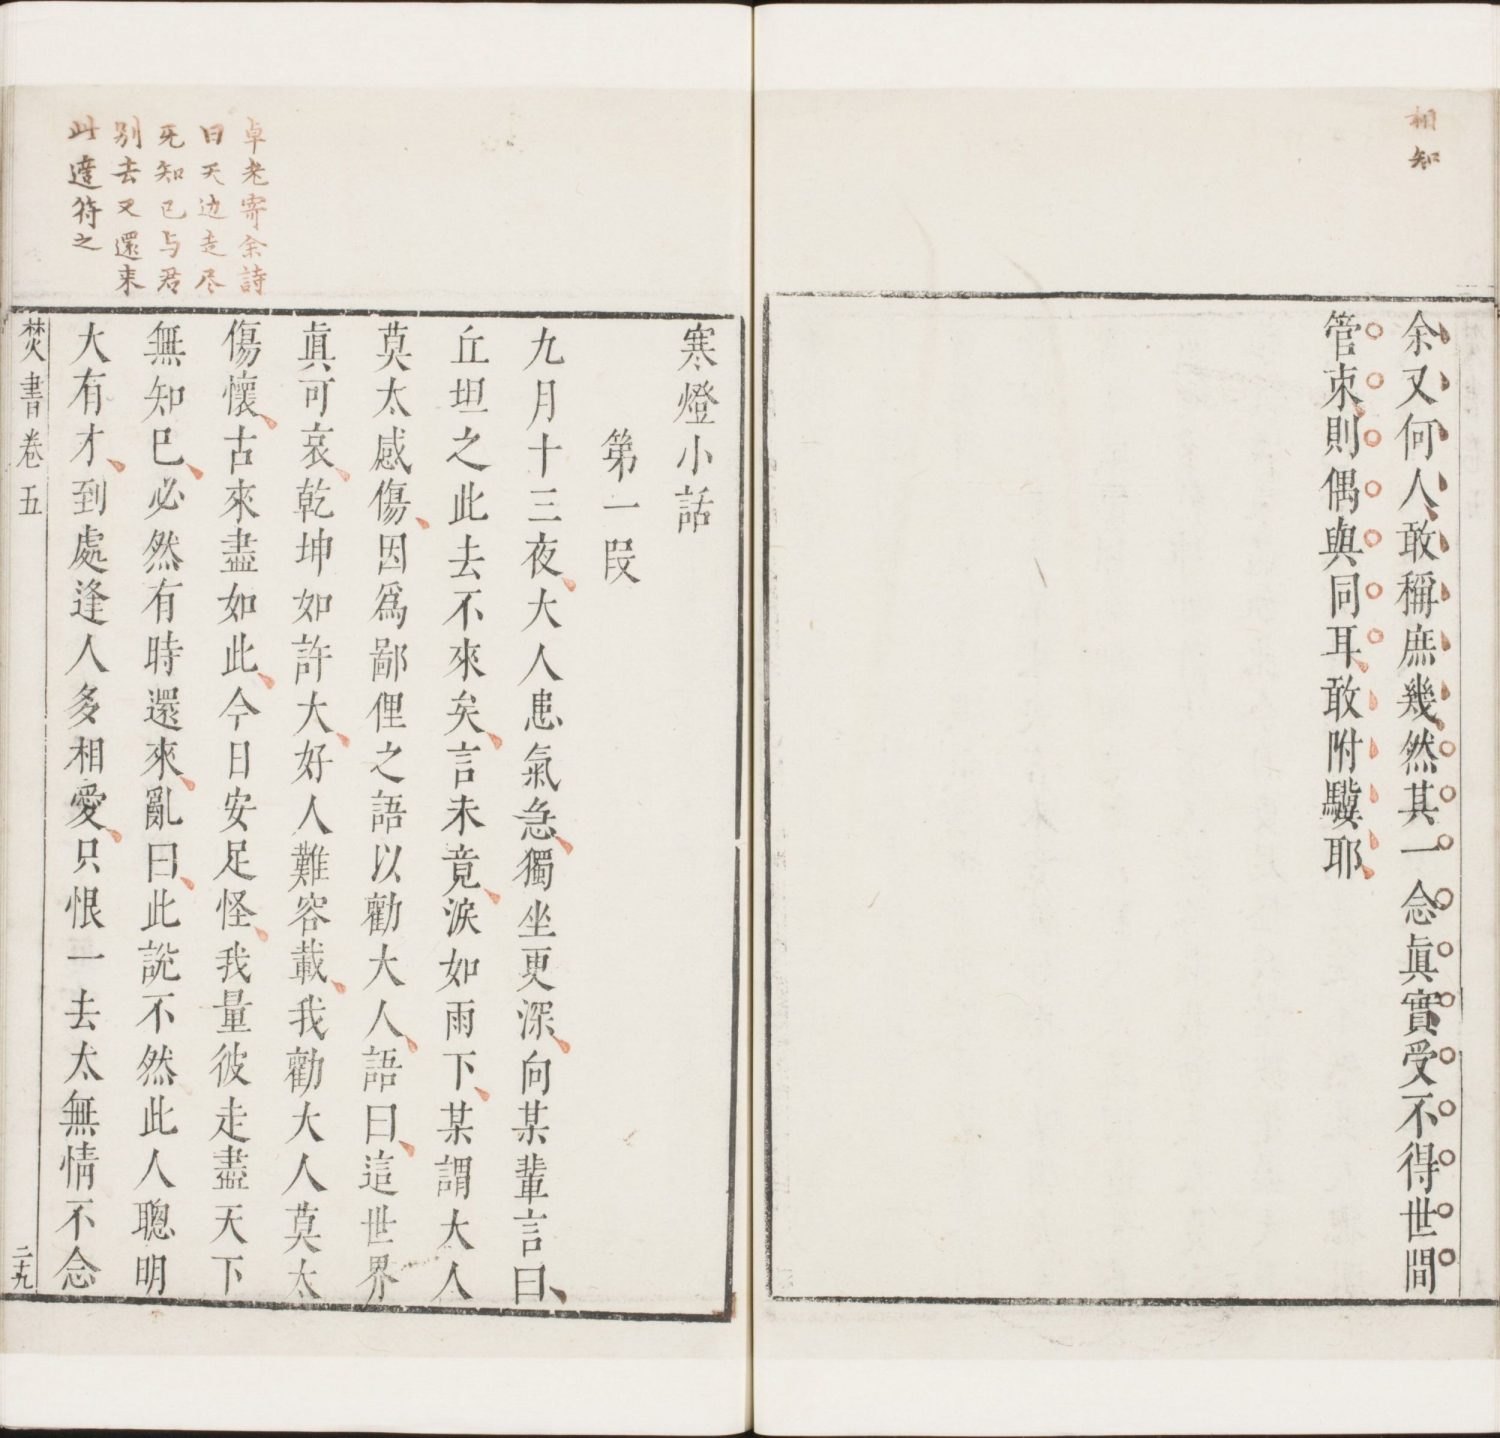 相知
余又何人敢稱庶幾然其一念眞實受不得世間
管束則偶與同耳敢附驥耶
卓老寄余詩
曰天边走尽
死知己与君
別去又還来
此遠符之
寒燈小話
第一段
九月十三夜大人患氣急獨坐更深向某輩言曰
丘坦之此去不來矣言未竟淚如雨下某謂大人
莫太感傷因爲鄙俚之語以勸大人語曰這世界
眞可哀乾坤如許大好人難容載我勸大人莫太
傷懷古來盡如此今日安足怪我量彼走盡天下
無知已必然有時還來亂曰此說不然此人聰明
大有才到處逢人多相愛只恨一去太無情不念
焚書卷五
二十九